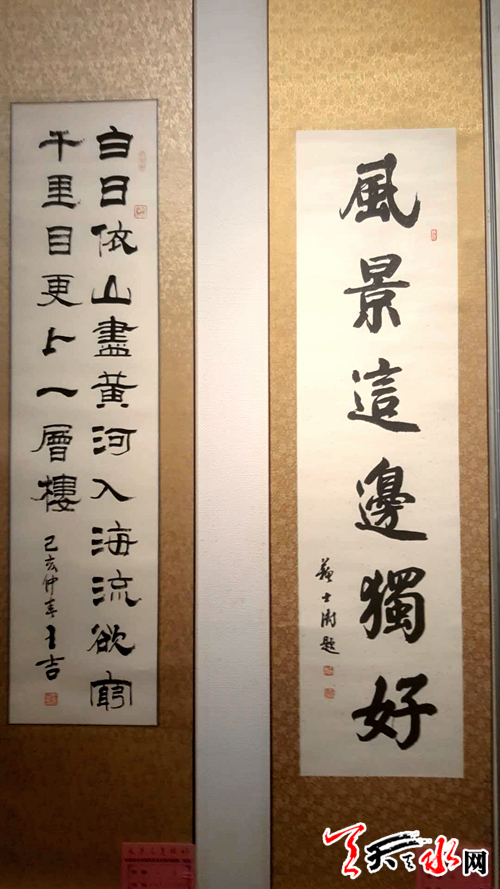 風景這邊獨好
蘇士澍題
白日依山盡黃河入海流欲窮
千里目更上一層樓
己亥仲春 王吉
天天天水网